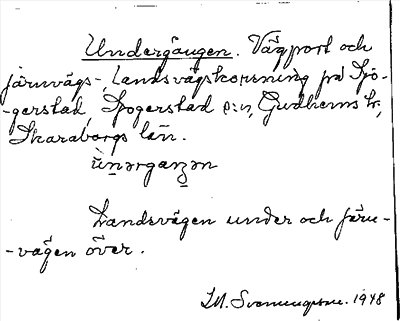 Undergången. Vägport och
järnvägs-, landsvägskorsning på Sjö-
-gerstad, Sjogerstad s:n, Gudhems hd,
Skaraborgs län.
ùnərganʒən
Landsvägen under och järn-
-vägen över.
1948